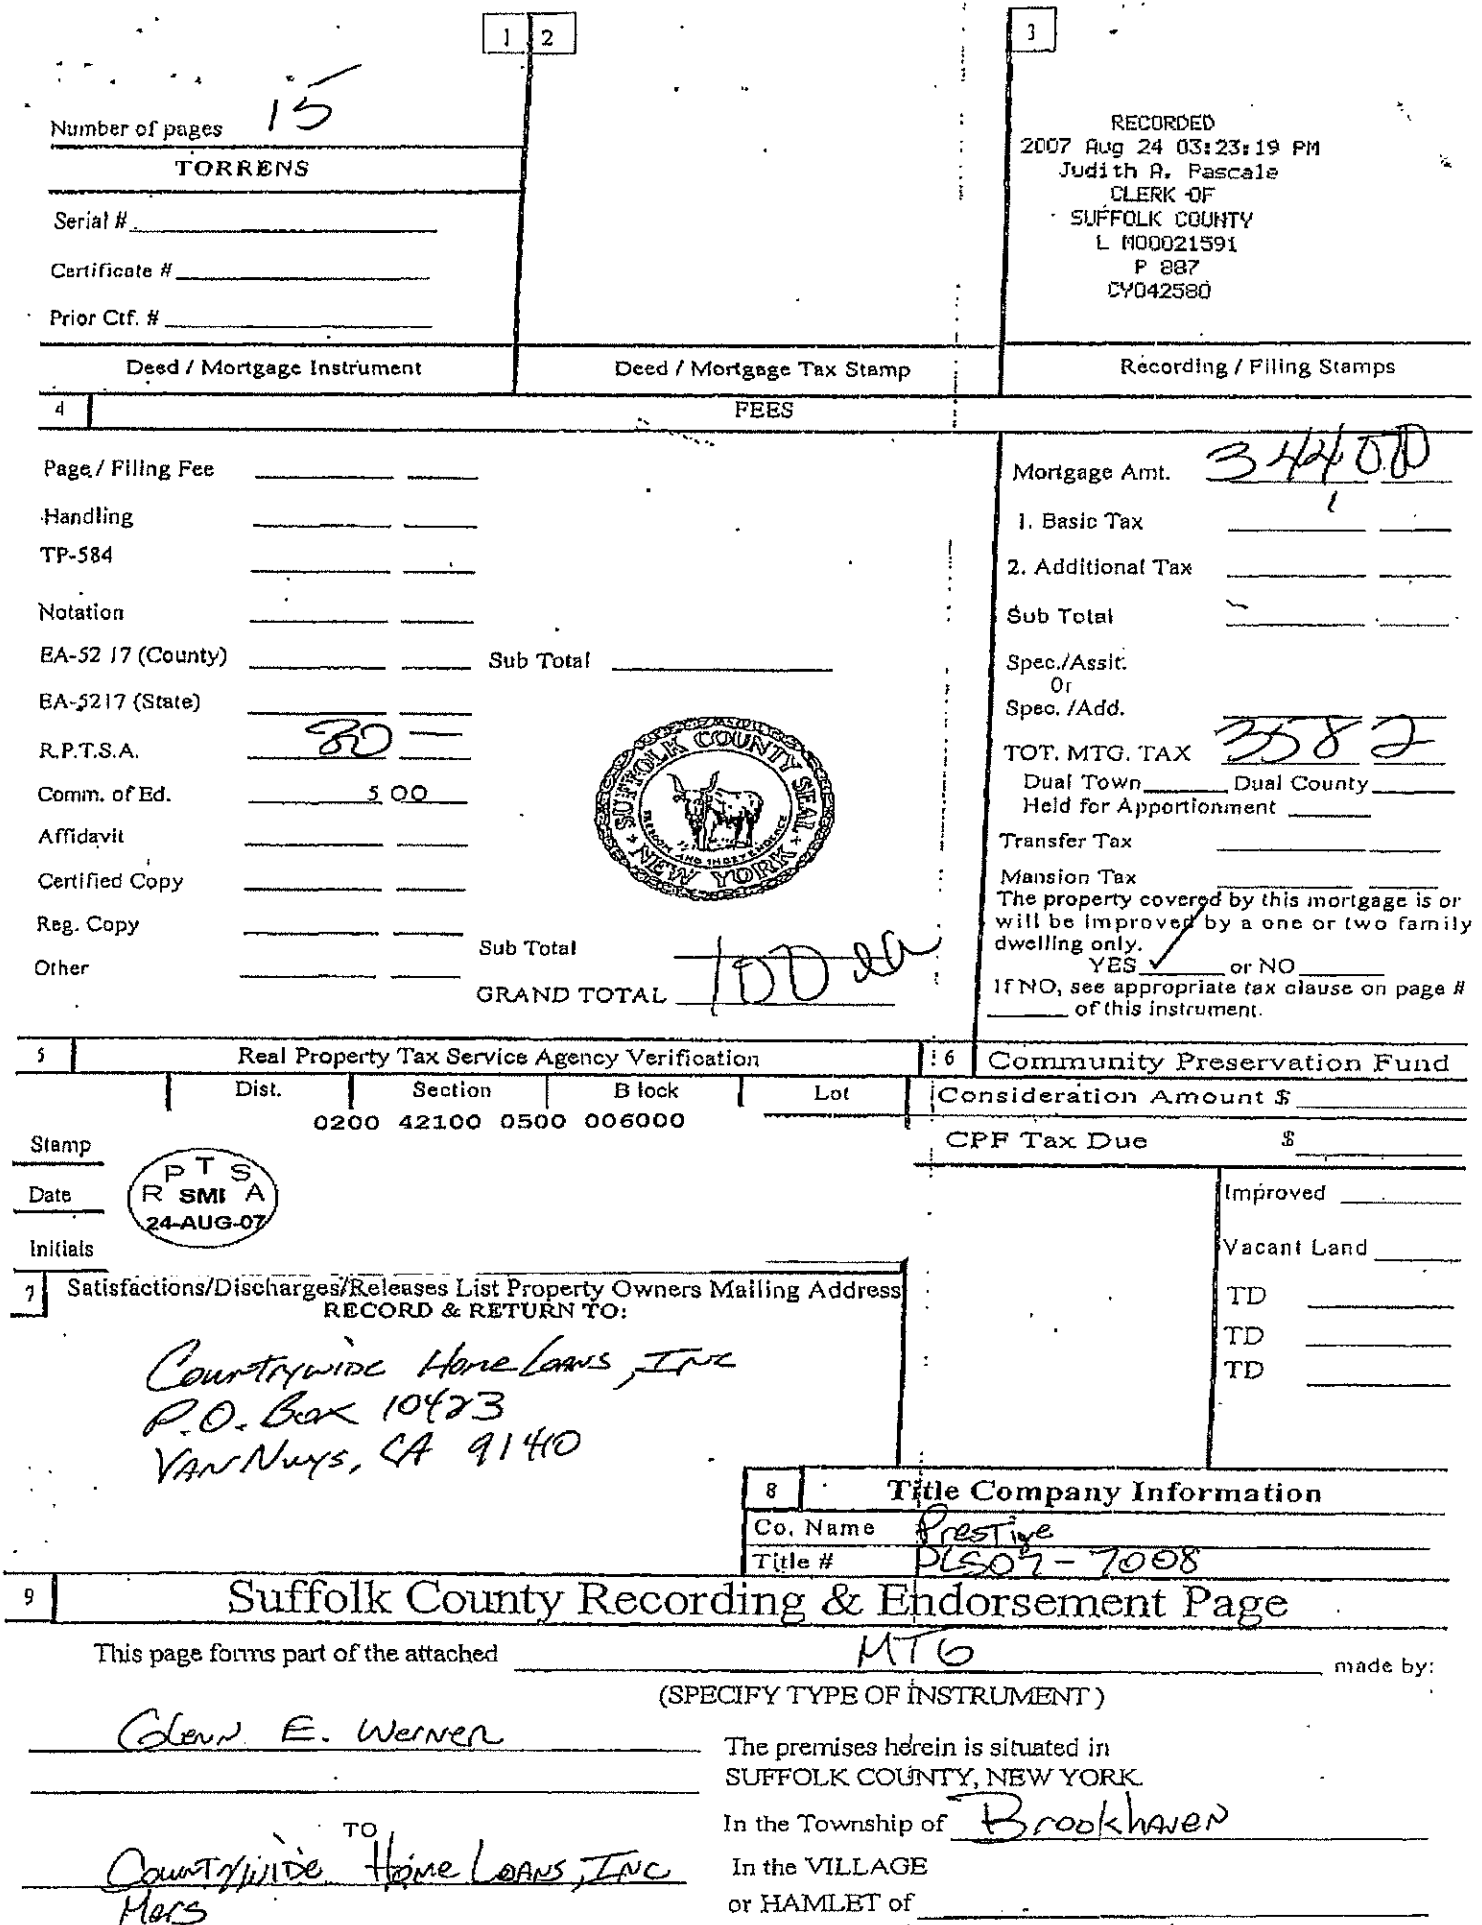 1 2 3
Number of pages 15
TORRENS
Serial #
Certificate #
Prior Ctf. #
RECORDED
2007 Aug 24 03:23:19 PM
Judith A. Pascale
CLERK OF
SUFFOLK COUNTY
L M00021591
P 887
CY042580
Deed / Mortgage Instrument
Deed / Mortgage Tax Stamp
Recording / Filing Stamps
4 FEES
Page / Filing Fee
Handling
TP-584
Notation
EA-52 17 (County)
EA-5217 (State)
R.P.T.S.A. 30
Comm. of Ed. 5 00
Affidavit
Certified Copy
Reg. Copy
Other
Sub Total
SUFFOLK COUNTY SEAL
FREEDOM AND INDEPENDENCE
NEW YORK
Sub Total
GRAND TOTAL 100
Mortgage Amt. 344,000
1. Basic Tax
2. Additional Tax
Sub Total
Spec./Assit.
Or
Spec. /Add.
TOT. MTG. TAX 3582
Dual Town Dual County
Held for Apportionment
Transfer Tax
Mansion Tax
The property covered by this mortgage is or
will be improved by a one or two family
dwelling only.
YES ✓ or NO
If NO, see appropriate tax clause on page #
of this instrument.
5 Real Property Tax Service Agency Verification
Dist. Section B lock Lot
0200 42100 0500 006000
Stamp
Date
Initials
R P T S A
SMI
24-AUG-07
6 Community Preservation Fund
Consideration Amount $
CPF Tax Due $
Improved
Vacant Land
TD
TD
TD
7 Satisfactions/Discharges/Releases List Property Owners Mailing Address
RECORD & RETURN TO:
Countrywide Home Loans, Inc
P.O. Box 10423
Van Nuys, CA 91410
8 Title Company Information
Co. Name Prestige
Title # PLS07-7008
9 Suffolk County Recording & Endorsement Page
This page forms part of the attached MTG made by:
(SPECIFY TYPE OF INSTRUMENT )
Glenn E. Werner
The premises herein is situated in
SUFFOLK COUNTY, NEW YORK.
TO
In the Township of Brookhaven
Countrywide Home Loans, Inc
Mers
In the VILLAGE
or HAMLET of